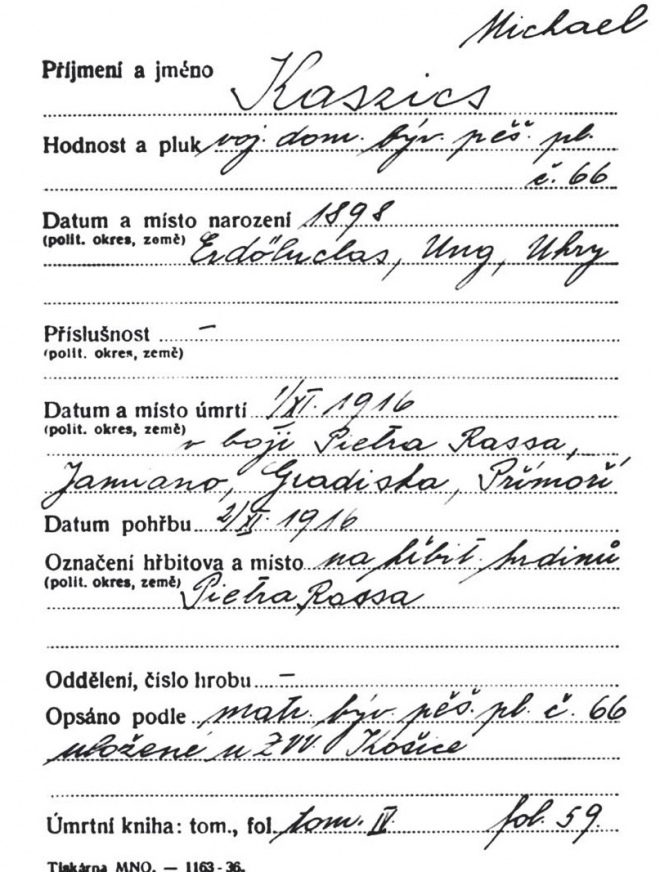 Michael
Příjmení a jméno Kaszics
Hodnost a pluk voj. dom. býv. pěš. pl.
č. 66
Datum a místo narození 1898
(polit. okres, země) Erdőluclas, Ung, Uhry
Příslušnost –
(polit. okres, země)
Datum a místo úmrtí 1/XI. 1916
(polit. okres, země) v boji Pietra Rassa,
Jamiano, Gradiska, Přímoří
Datum pohřbu 2/XI. 1916
Označení hřbitova a místo na hřbit. hrdinů
(polit. okres, země) Pietra Rassa
Oddělení, číslo hrobu –
Opsáno podle matr. býv. pěš. pl. č. 66
uložené u ZVV. Košice
Úmrtní kniha: tom., fol. tom. IV. fol. 59.
Tiskárna MNO. — 1163-36.